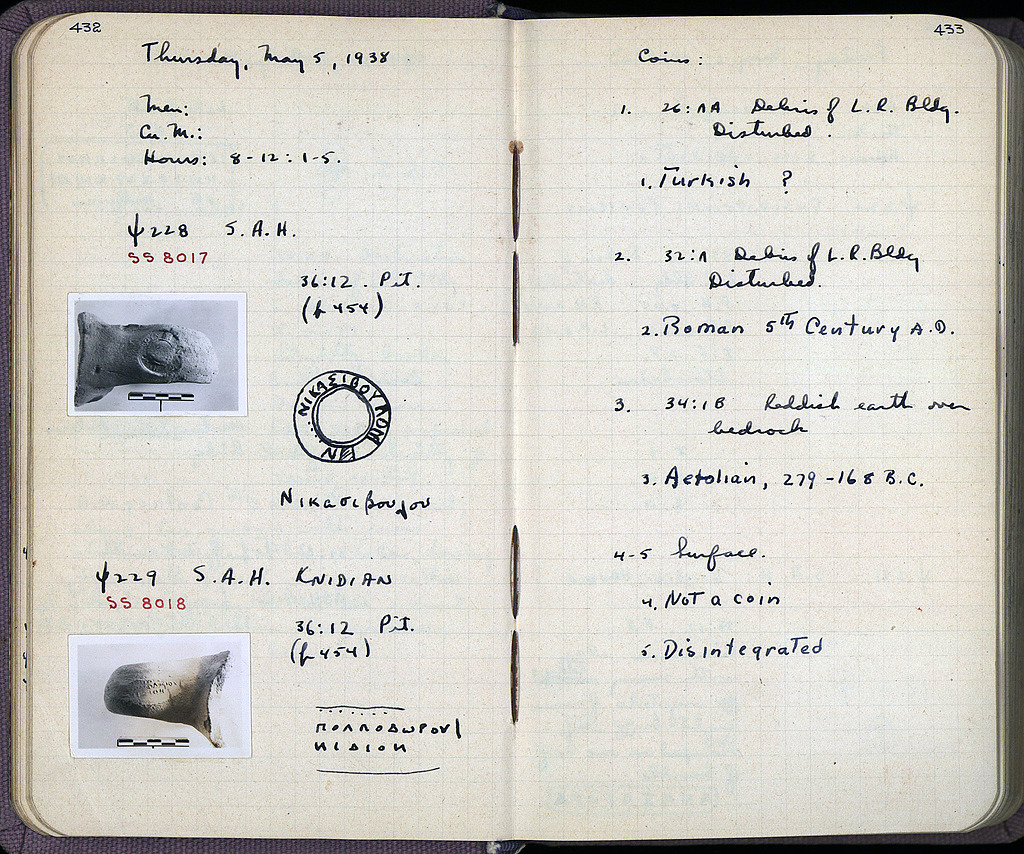 432
Thursday, May 5, 1938
Men:
Cu. M.:
Hours: 8-12: 1-5.
ψ228 S.A.H.
SS 8017
36:12. Pit.
(p 454)
ΝΙΚΑΣΙΒΟΥ
Νικασιβουλου
ψ229 S.A.H. KNIDIAN
SS 8018
36:12 Pit.
(p 454)
ΠΟΛΛΠΟΔΩΡΟΥ
ΚΙΔΙΟΝ
433
Coins:
1. 26:ΛΑ Debris of L.R. Bldg.
Disturbed.
1. Turkish ?
2. 32:Λ Debris of L.R. Bldg
Disturbed.
2. Roman 5th Century A.D.
3. 34:IB Reddish earth over
bedrock
3. Aetolian, 279-168 B.C.
4-5 Surface.
4. Not a coin
5. Disintegrated